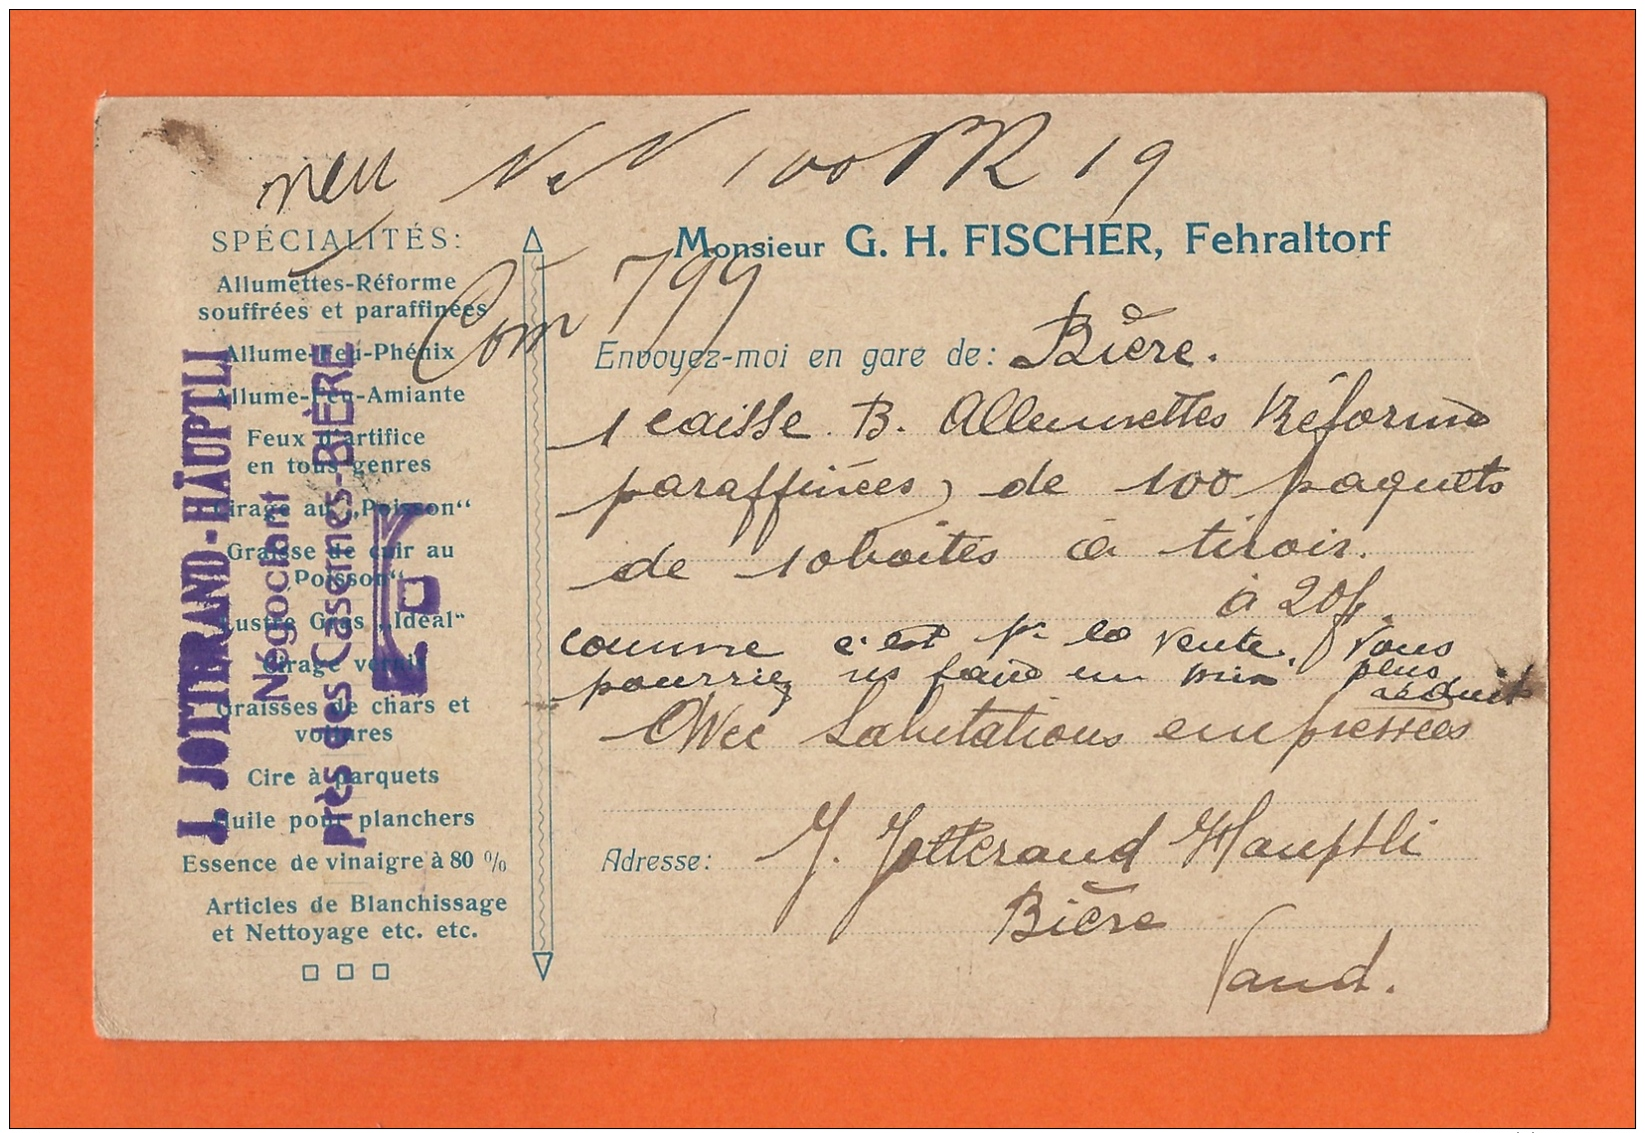 neu N° 100 PR 19
SPÉCIALITÉS:
Allumettes-Réforme
souffrées et paraffinées
Allume-Feu-Phénix
Allume-Feu-Amiante
Feux d'artifice
en tous genres
Cirage au „Poisson“
Graisse de cuir au
Poisson“
Lustre Gras „Idéal“
Cirage vernis
Graisses de chars et
voitures
Cire à parquets
Huile pour planchers
Essence de vinaigre à 80 %
Articles de Blanchissage
et Nettoyage etc. etc.
J. JOTTERAND-HÄUPTLI
Négociant
près des Casernes-BIÈRE
Monsieur G. H. FISCHER, Fehraltorf
Com 799
Envoyez-moi en gare de: Bière.
1 caisse B. Allumettes Réforme
paraffinées, de 100 paquets
de 10 boites à tiroir.
à 20 f.
comme c'est pr la vente, Vous
pourriez ns faire un prix plus
réduit
Avec Salutations empressées
Adresse: J. Jotterand Hauptli
Bière
Vaud.